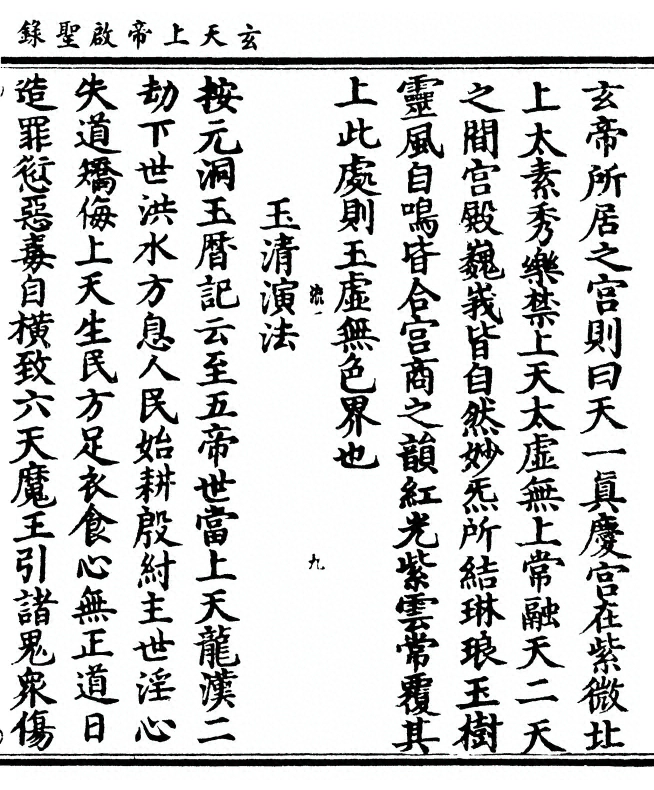 玄天上帝啟聖錄
玄帝所居之宮則曰天一眞慶宮在紫微北
上太素秀樂禁上天太虛無上常融天二天
之間宮殿巍峩皆自然妙炁所結琳琅玉樹
靈風自鳴皆合宮商之韻紅光紫雲常覆其
上此處則玉虛無色界也
流一
九
玉清演法
按元洞玉曆記云至五帝世當上天龍漢二
劫下世洪水方息人民始耕殷紂主世淫心
失道矯侮上天生民方足衣食心無正道日
造罪愆惡毒自橫致六天魔王引諸鬼衆傷